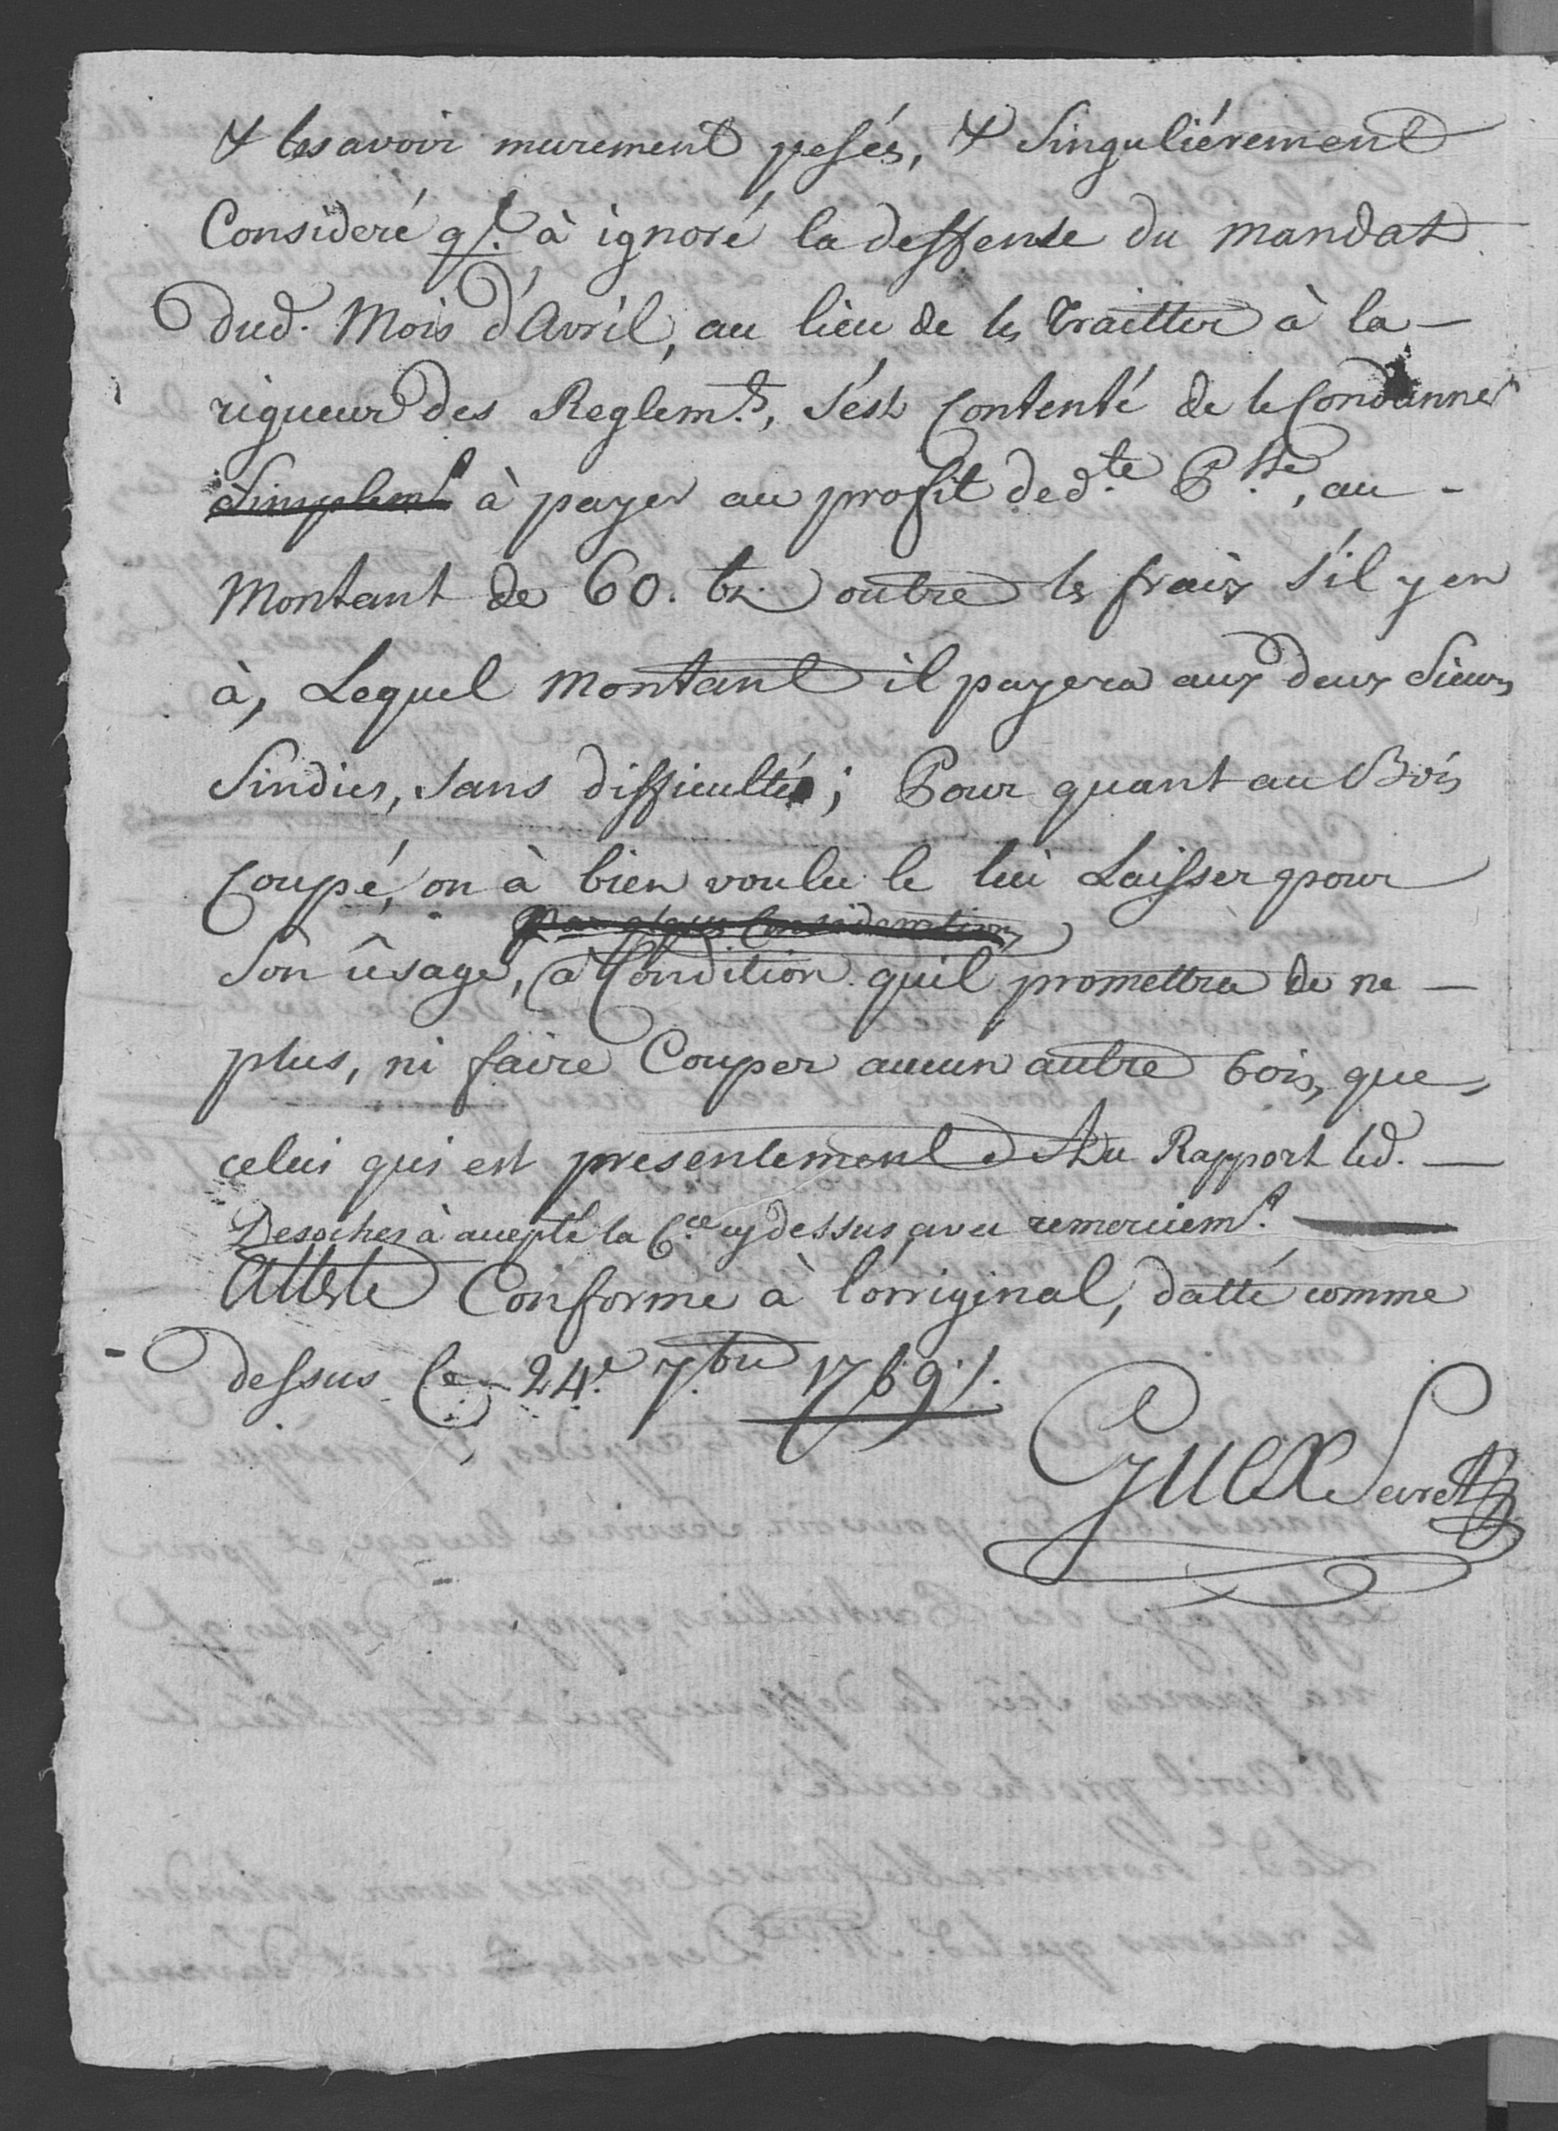 & les avoir murement pesés, & Singuliérement
Consideré ql. à ignoré la deffense du mandat
dud. Mois d'Avril, au lieu de les traitter à la
rigueur des Reglem.ts, s'est Contenté de le Condanner
Simplemt à payer au profit de d.te B.sie, au
Montant de 60. bz. outre les fraix s'il y en
à, Lequel montant il payera aux deux Sieurs
Sindics, sans difficulté; Pour quant au Bois
Coupé, on à bien voulu le lui Laisser pour
par Consideration
Son ûsage, à Condition quil promettra de ne
plus, ni faire Couper aucun autre bois, que
celui qui est presentement Du Rapport led.
Desoches à accepté la C.ce cy dessus avec remerciem.t
Atteste Conforme à l'orriginal, datté comme
dessus Ce 24.e 7.bre 1769./.
Guex Secret